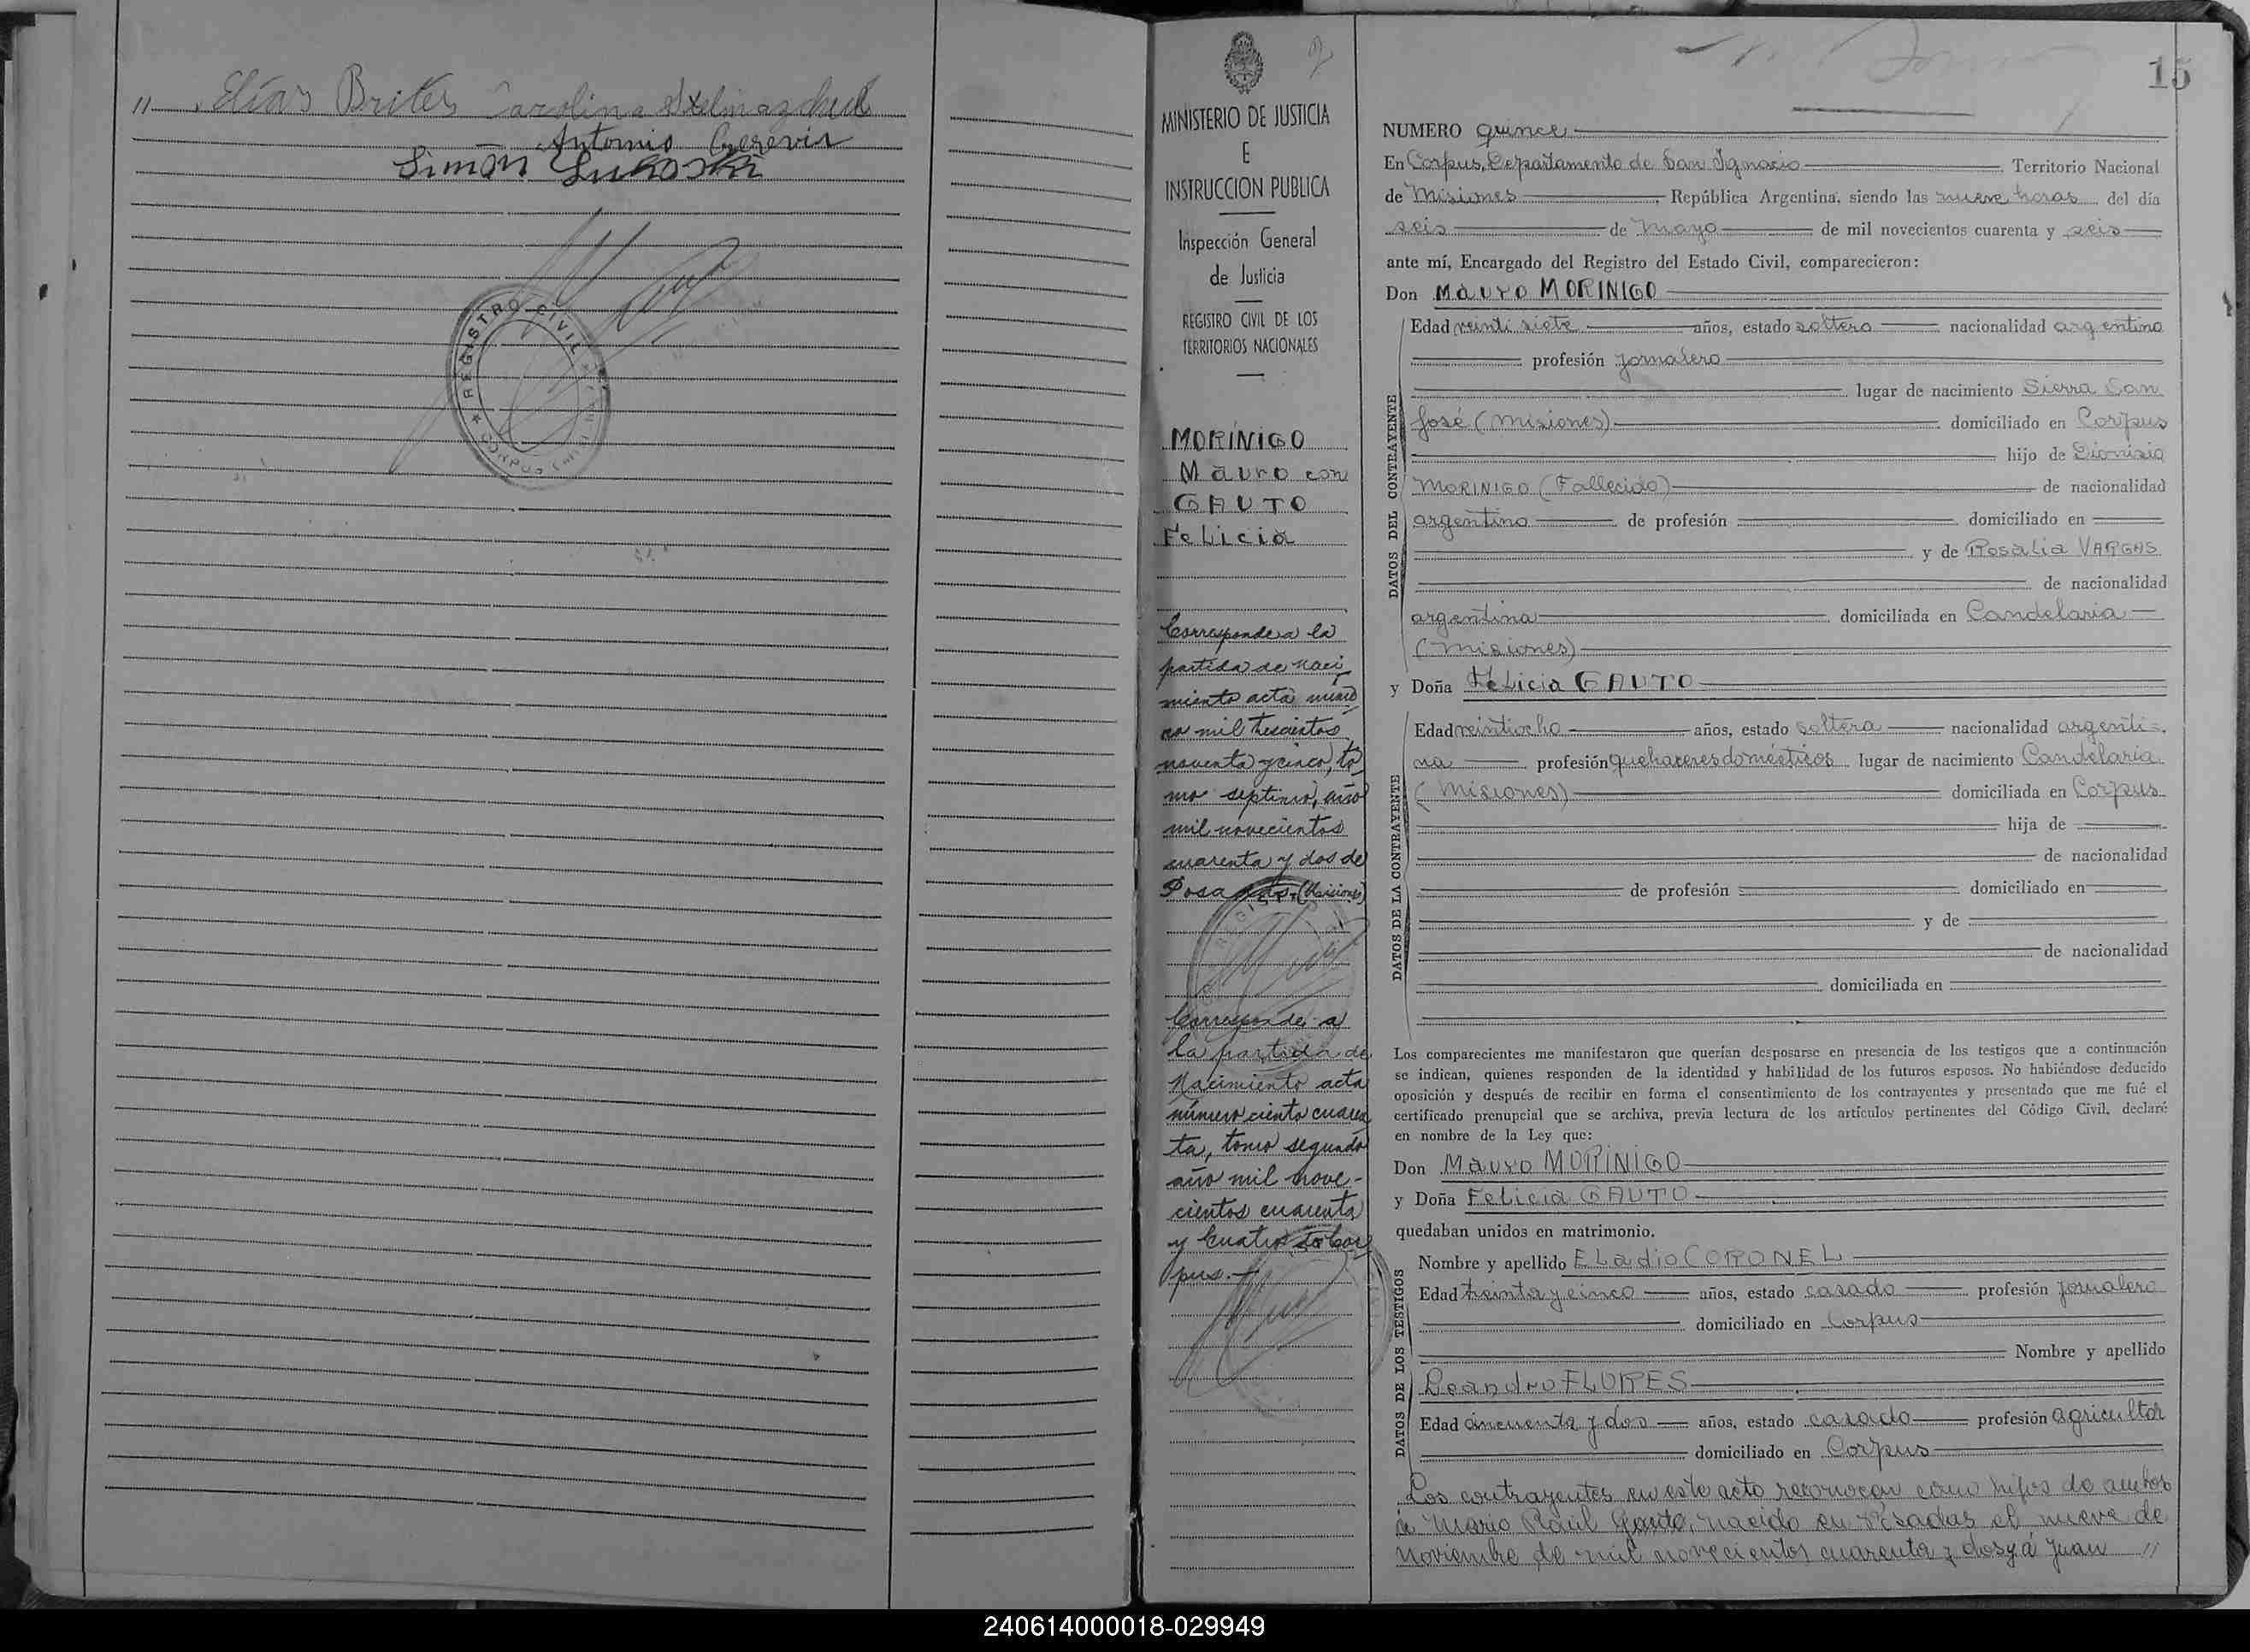 " Elías Brites Carolina
Antonio
Simón
REGISTRO CIVIL
CORPUS
MINISTERIO DE JUSTICIA
E
INSTRUCCION PUBLICA
Inspección General
de Justicia
REGISTRO CIVIL DE LOS
TERRITORIOS NACIONALES
MORÍNIGO
Mauro con
GAUTO
Felicia
Corresponde a la
partida de naci
miento acta núme
ro mil trescientos
noventa y cinco, to
mo septimo, año
mil novecientos
cuarenta y dos de
Posadas (Misiones)
Corresponde a
la partida de
Nacimiento acta
número ciento cuaren
ta, tomo segundo
año mil nove-
cientos cuarenta
y cuatro Cor
pus.-
15
NUMERO quince
En Corpus, Departamento de San Ignacio Territorio Nacional
de Misiones, República Argentina, siendo las nueve horas del día
seis de Mayo de mil novecientos cuarenta y seis
ante mí, Encargado del Registro del Estado Civil, comparecieron:
Don Mauro MORINIGO
DATOS DEL CONTRAYENTE
Edad veinti siete años, estado soltero nacionalidad argentino
profesión jornalero
lugar de nacimiento Sierra San
José (Misiones) domiciliado en Corpus
hijo de Dionisio
MORINIGO (Fallecido) de nacionalidad
argentino de profesión domiciliado en
y de Rosalia VARGAS
de nacionalidad
argentina domiciliada en Candelaria
(Misiones)
y Doña Felicia GAUTO
DATOS DE LA CONTRAYENTE
Edad veintiocho años, estado soltera nacionalidad argenti=
na profesión quehaceres domésticos lugar de nacimiento Candelaria
(Misiones) domiciliada en Corpus
hija de
de nacionalidad
de profesión domiciliado en
y de
de nacionalidad
domiciliada en
Los comparecientes me manifestaron que querían desposarse en presencia de los testigos que a continuación
se indican, quienes responden de la identidad y habilidad de los futuros esposos. No habiéndose deducido
oposición y después de recibir en forma el consentimiento de los contrayentes y presentado que me fué el
certificado prenupcial que se archiva, previa lectura de los artículos pertinentes del Código Civil, declaré
en nombre de la Ley que:
Don Mauro MORINIGO
y Doña Felicia GAUTO
quedaban unidos en matrimonio.
DATOS DE LOS TESTIGOS
Nombre y apellido Eladio CORONEL
Edad treinta y cinco años, estado casado profesión jornalero
domiciliado en Corpus
Nombre y apellido
Leandro FLORES
Edad cincuenta y dos años, estado casado profesión agricultor
domiciliado en Corpus
Los contrayentes en este acto reconocen como hijos de ambos
a Mario Raúl Gauto, nacido en Posadas el nueve de
Noviembre de mil novecientos cuarenta y dos y a Juan "
240614000018-029949